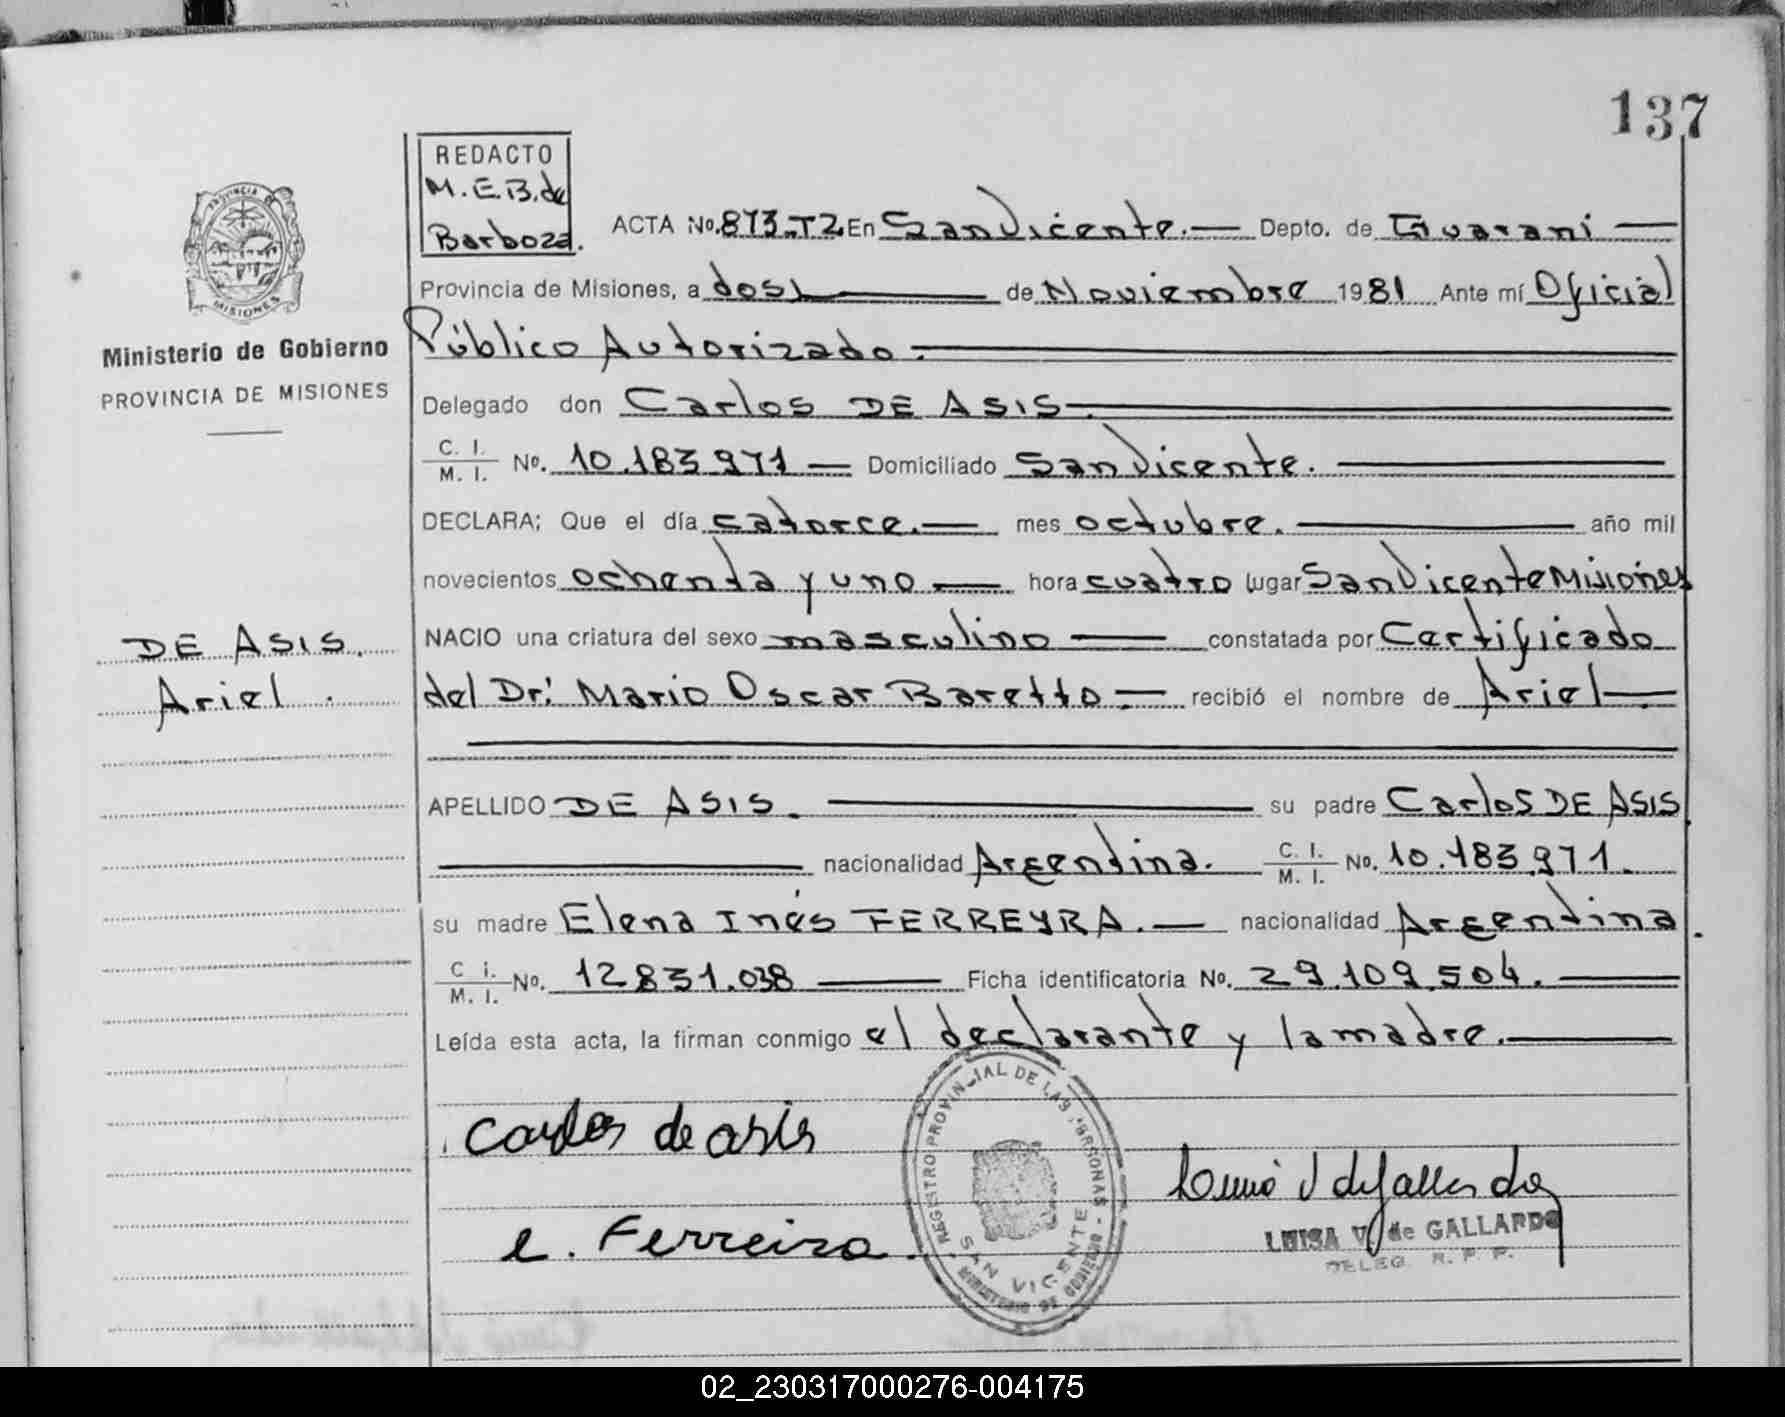 137
REDACTO
M.E.B. de
Barboza.
ACTA No. 873-T2 En San Vicente. Depto. de Guarani
Provincia de Misiones, a dos de Noviembre 1981 Ante mí Oficial
Público Autorizado.
Ministerio de Gobierno
PROVINCIA DE MISIONES
Delegado don Carlos DE ASIS.
C. I.
M. I. No. 10.183.971 Domiciliado San Vicente.
DECLARA; Que el día catorce. mes octubre. año mil
novecientos ochenta y uno hora cuatro lugar San Vicente Misiones
NACIO una criatura del sexo masculino constatada por Certificado
DE ASIS.
Ariel.
del Dr: Mario Oscar Baretto. recibió el nombre de Ariel.
APELLIDO DE ASIS. su padre Carlos DE ASIS
nacionalidad Argentina. C. I.
M. I. No. 10.183.971.
su madre Elena Inés FERREYRA. nacionalidad Argentina.
C. i.
M. I. No. 12.831.038 Ficha identificatoria No. 29.109.504.
Leída esta acta, la firman conmigo el declarante y la madre.
Carlos de asis
e. Ferreira.
REGISTRO PROVINCIAL DE LAS PERSONAS - MINISTERIO DE GOBIERNO
SAN VICENTE
LUISA V. de GALLARDO
DELEG. R. P. P.
02_230317000276-004175